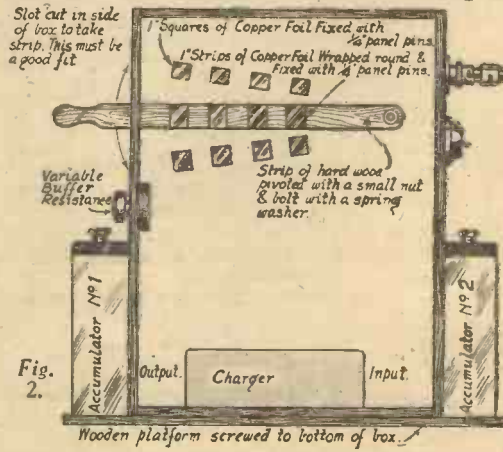 Slot cut in side
of box to take
strip. This must be
a good fit
1" Squares of Copper Foil Fixed with
1/4" panel pins.
1" Strips of Copper Foil Wrapped round &
Fixed with 1/4" panel pins.
Strip of hard wood
pivoted with a small nut
& bolt with a spring
washer.
Variable
Buffer
Resistance
Accumulator Nº1
Accumulator Nº2
Fig.
2.
Output.
Charger
Input.
Wooden platform screwed to bottom of box.